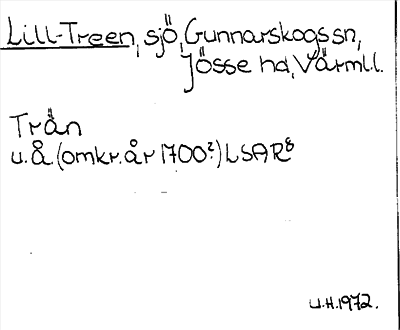 Lill-Treen, sjö, Gunnarskogs sn,
Jösse hd, Värml.l.
Trån
u.å. (omkr. år 1700?) LSAR8
U.H. 1972.